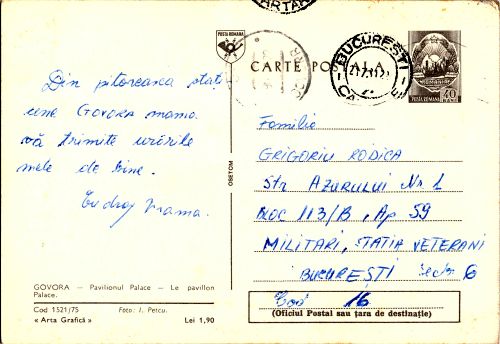 POSTA ROMANA
CARTE POȘTALĂ
BUCUREȘTI
POSTA ROMANA 40
Din pitoreasca stați
une GOVORA mama
vă trimite urările
mele de bine.
Cu drag Mama.
OSETCM
Familia
GRIGORIU RODICA
Str AZURULUI Nr 1
BLOC 113/B, Ap 59
MILITARI, STATIA VETERANI
BUCUREȘTI Sect 6
Cod 16
(Oficiul Postal sau țara de destinație)
GOVORA — Pavilionul Palace — Le pavillon
Palace.
Cod 1521/75 Foto: I. Petcu.
« Arta Grafică » Lei 1,90